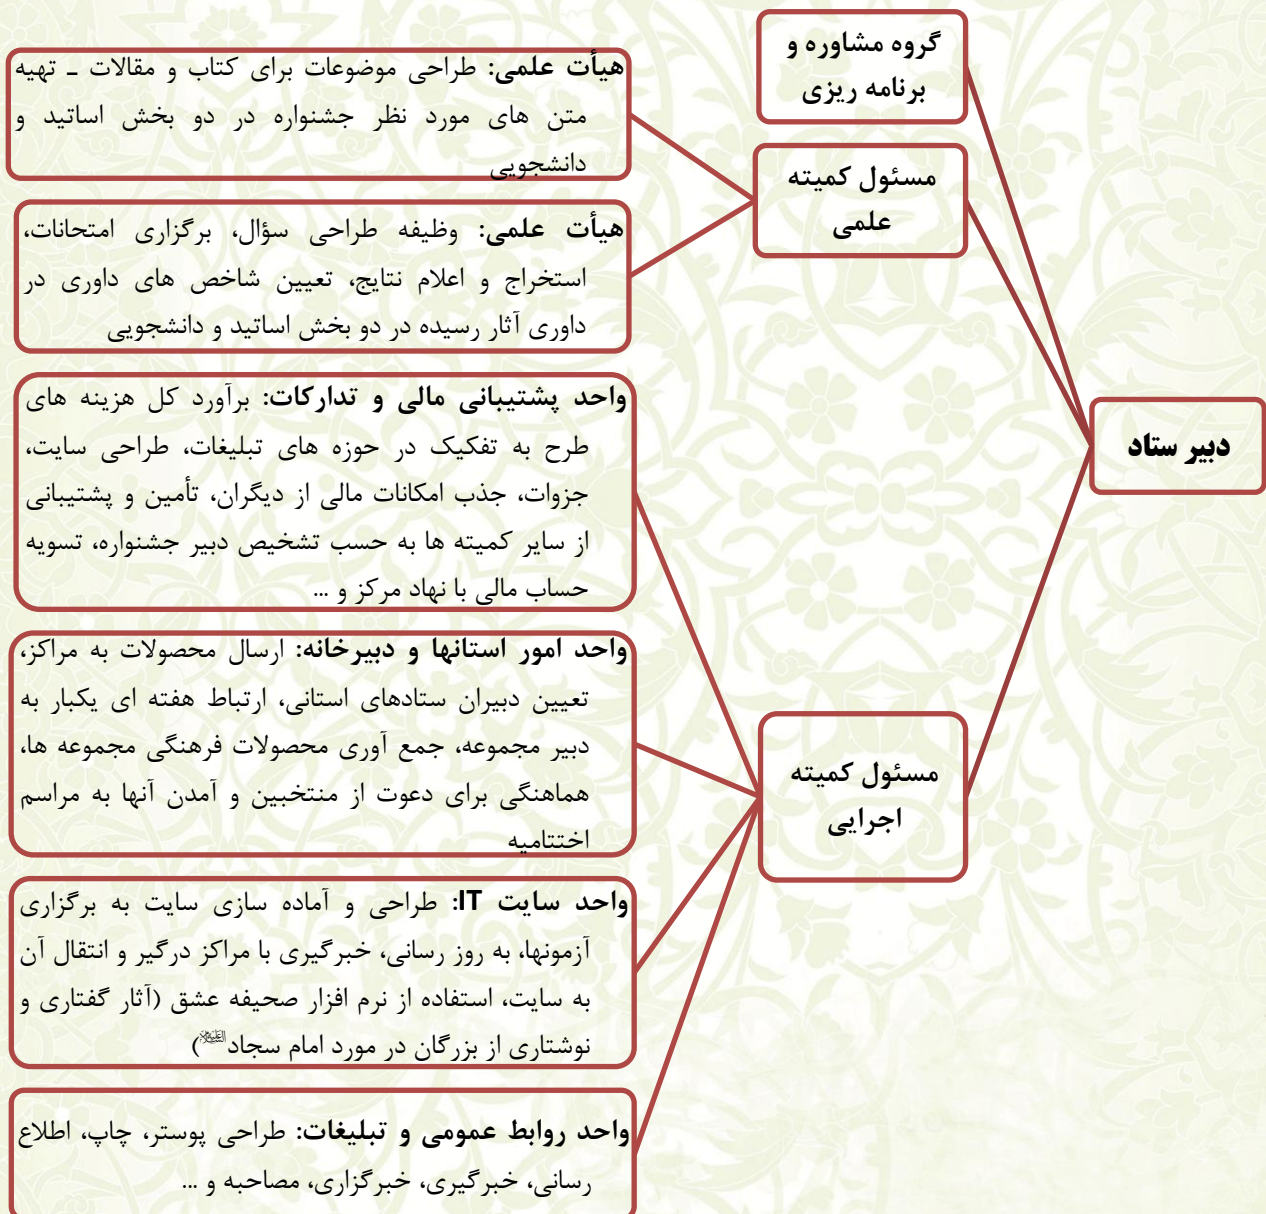 دبیر ستاد
گروه مشاوره و
برنامه ریزی
مسئول کمیته
علمی
هیأت علمی: طراحی موضوعات برای کتاب و مقالات ـ تهیه
متن های مورد نظر جشنواره در دو بخش اساتید و
دانشجویی
هیأت علمی: وظیفه طراحی سؤال، برگزاری امتحانات،
استخراج و اعلام نتایج، تعیین شاخص های داوری در
داوری آثار رسیده در دو بخش اساتید و دانشجویی
مسئول کمیته
اجرایی
واحد پشتیبانی مالی و تدارکات: برآورد کل هزینه های
طرح به تفکیک در حوزه های تبلیغات، طراحی سایت،
جزوات، جذب امکانات مالی از دیگران، تأمین و پشتیبانی
از سایر کمیته ها به حسب تشخیص دبیر جشنواره، تسویه
حساب مالی با نهاد مرکز و ...
واحد امور استانها و دبیرخانه: ارسال محصولات به مراکز،
تعیین دبیران ستادهای استانی، ارتباط هفته ای یکبار به
دبیر مجموعه، جمع آوری محصولات فرهنگی مجموعه ها،
هماهنگی برای دعوت از منتخبین و آمدن آنها به مراسم
اختتامیه
واحد سایت IT: طراحی و آماده سازی سایت به برگزاری
آزمونها، به روز رسانی، خبرگیری با مراکز درگیر و انتقال آن
به سایت، استفاده از نرم افزار صحیفه عشق (آثار گفتاری و
نوشتاری از بزرگان در مورد امام سجاد علیه‌السلام)
واحد روابط عمومی و تبلیغات: طراحی پوستر، چاپ، اطلاع
رسانی، خبرگیری، خبرگزاری، مصاحبه و ...